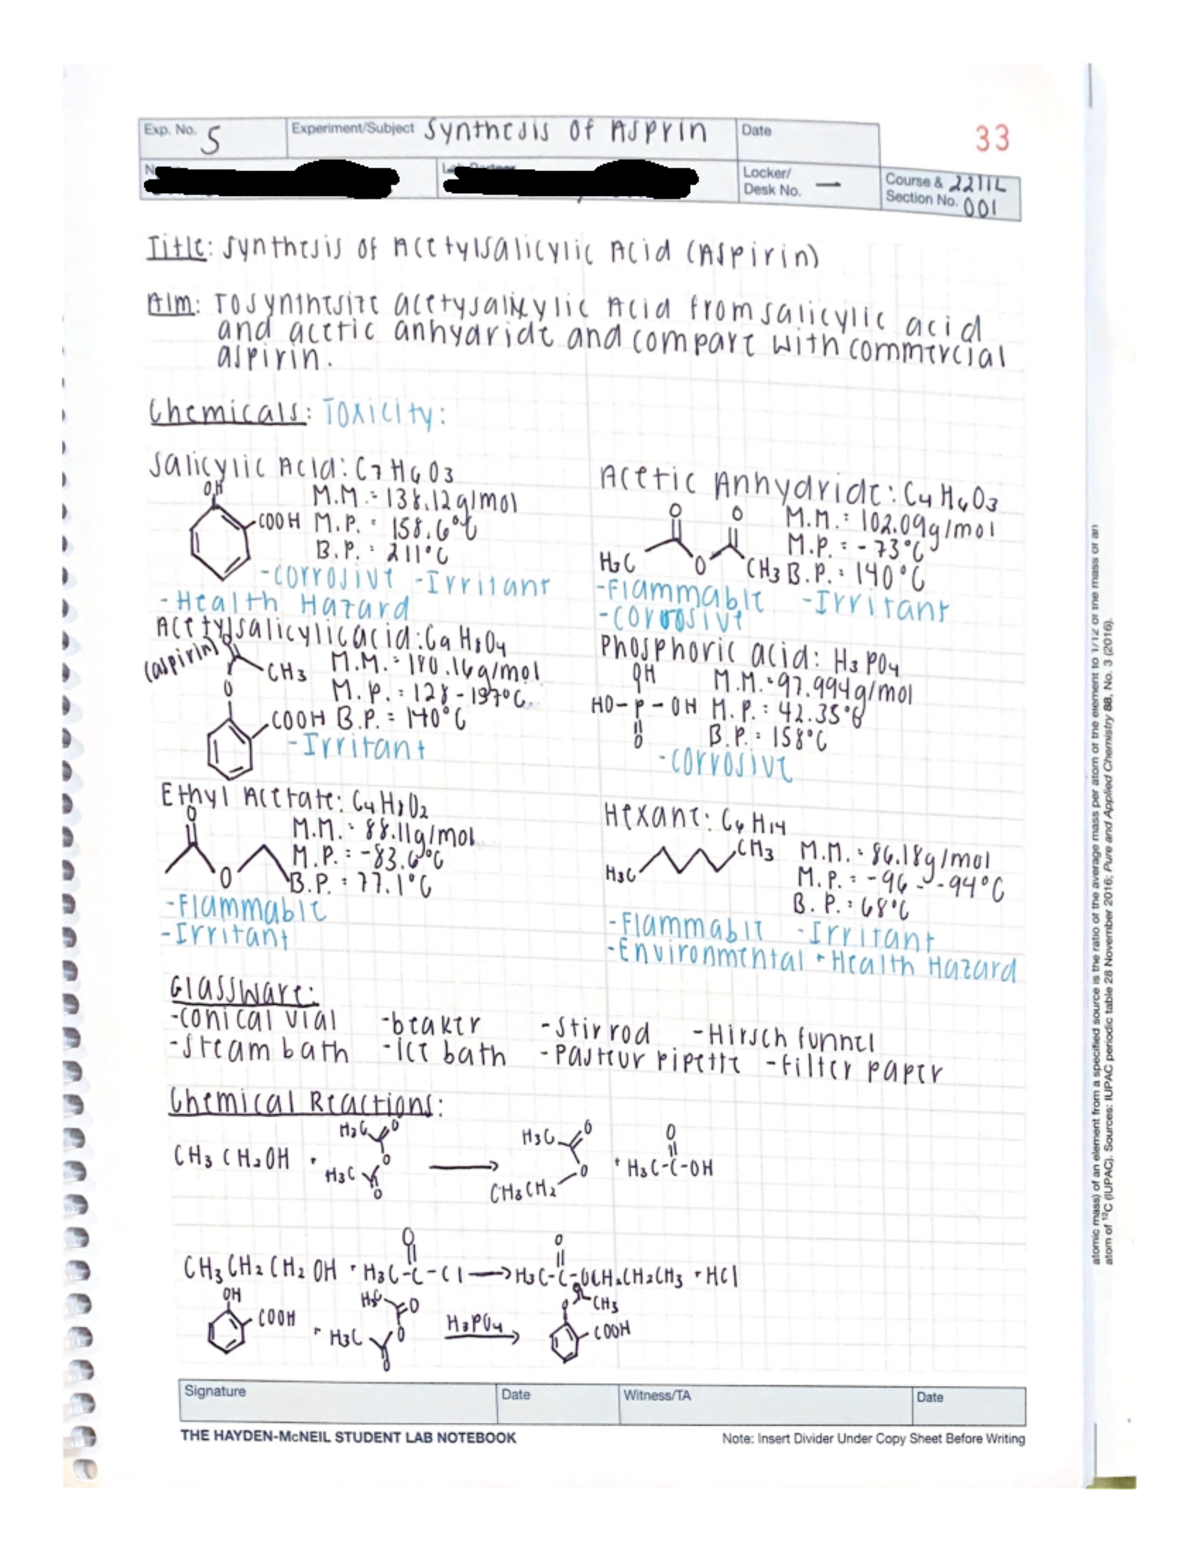 Exp. No. 5
Experiment/Subject Synthesis of Asprin
Date
33
Locker/
Desk No. —
Course & 2211L
Section No. 001
Title: Synthesis of Acetylsalicylic Acid (Aspirin)
Aim: To synthesize acetysalicylic Acid from salicylic acid
and acetic anhydride and compare with commercial
aspirin.
Chemicals: Toxicity:
Salicylic Acid: C7H6O3
OH
COOH
M.M. = 138.12g/mol
M.P. = 158.6°C
B.P. = 211°C
-corrosive -Irritant
-Health Hazard
Acetic Anhydride: C4H6O3
O O
H3C O CH3
M.M. = 102.09g/mol
M.P. = -73°C
B.P. = 140°C
-Flammable -Irritant
-corrosive
Acetylsalicylic acid: C9H8O4
(aspirin)
O
CH3
O
COOH
M.M. = 180.16g/mol
M.P. = 128-137°C
B.P. = 140°C
-Irritant
Phosphoric acid: H3PO4
OH
HO-P-OH
O
M.M. = 97.994g/mol
M.P. = 42.35°C
B.P. = 158°C
-corrosive
Ethyl Acetate: C4H8O2
O
O
M.M. = 88.11g/mol
M.P. = -83.6°C
B.P. = 77.1°C
-Flammable
-Irritant
Hexane: C6H14
H3C CH3
M.M. = 86.18g/mol
M.P. = -96 - -94°C
B.P. = 68°C
-Flammable -Irritant
-Environmental + Health Hazard
Glassware:
-conical vial -beaker -stir rod -Hirsch funnel
-steam bath -ice bath -Pasteur pipette -filter paper
Chemical Reactions:
CH3CH2OH + H3C O O H3C O → H3C O O CH3CH2 + H3C-C-OH O
CH3CH2CH2OH + H3C-C-Cl O → H3C-C-OCH2CH2CH3 O + HCl
OH COOH + H3C O O H3C H3PO4 → O CH3 COOH
Signature
Date
Witness/TA
Date
THE HAYDEN-McNEIL STUDENT LAB NOTEBOOK
Note: Insert Divider Under Copy Sheet Before Writing
atomic mass) of an element from a specified source is the ratio of the average mass per atom of the element to 1/12 of the mass of an
atom of ¹²C (IUPAC). Sources: IUPAC periodic table 28 November 2016; Pure and Applied Chemistry 88, No. 3 (2016).